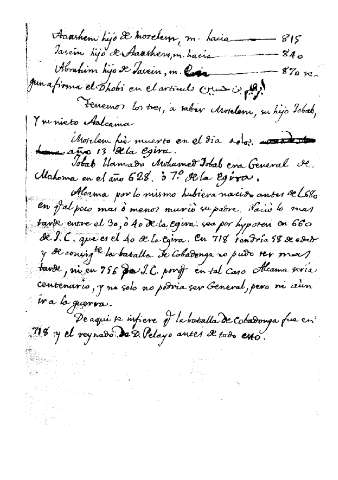 Aaashem hijo de Morelem, m. hacia — 815
Javein hijo de Aaashem, m. hacia — 840
Abrahim hijo de Javein, m. — 870 se
gun afirma el Dhobi en el articulo
Tenemos los tres, a saber Morelem, su hijo Jobab,
Y su nieto Aalcama
Morelem fue muerto en el dia
año 13 de la Egira.
Jobab llamado Mohamed Jobab era General de
Mahoma en el año 628. ó 7º de la Egira.
Alcama por lo mismo hubiera nacido antes del 680
en q.l poco mas ó menos murió su padre. Nació lo mas
tarde entre el 30, ó 40 de la Egira. sea por hypotesi en 660
de J.C. que es el 40 de la Egira. En 718 tendria 58 de edad
y de consig.te la batalla de Cobadonga no pudo ser mas
tarde, ni en 756 de J.C. porq.e en tal caso Alcama seria
centenario, y no solo no podria ser General, pero ni aún
ir a la guerra.
De aqui se infiere q.e la batalla de Cobadonga fue en
718 y el reynado de D. Pelayo antes de todo esto.